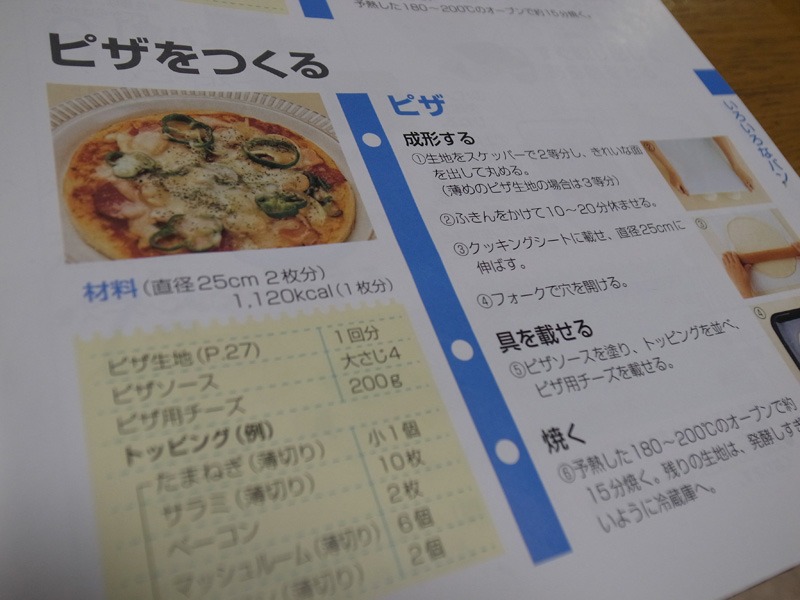 予熱した180～200℃のオーブンで約15分焼く。
ピザをつくる
材料(直径25cm 2枚分)
1,120kcal(1枚分)
ピザ生地(P.27) 1回分
ピザソース 大さじ4
ピザ用チーズ 200g
トッピング(例)
たまねぎ(薄切り) 小1個
サラミ(薄切り) 10枚
ベーコン 2枚
マッシュルーム(薄切り) 6個
(薄切り) 2個
ピザ
成形する
①生地をスケッパーで2等分し、きれいな面
を出して丸める。
(薄めのピザ生地の場合は3等分)
②ふきんをかけて10～20分休ませる。
③クッキングシートに載せ、直径25cmに
伸ばす。
④フォークで穴を開ける。
具を載せる
⑤ピザソースを塗り、トッピングを並べ、
ピザ用チーズを載せる。
焼く
⑥予熱した180～200℃のオーブンで約
15分焼く。残りの生地は、発酵しすぎ
いように冷蔵庫へ。
②
③
④
いろいろなパン